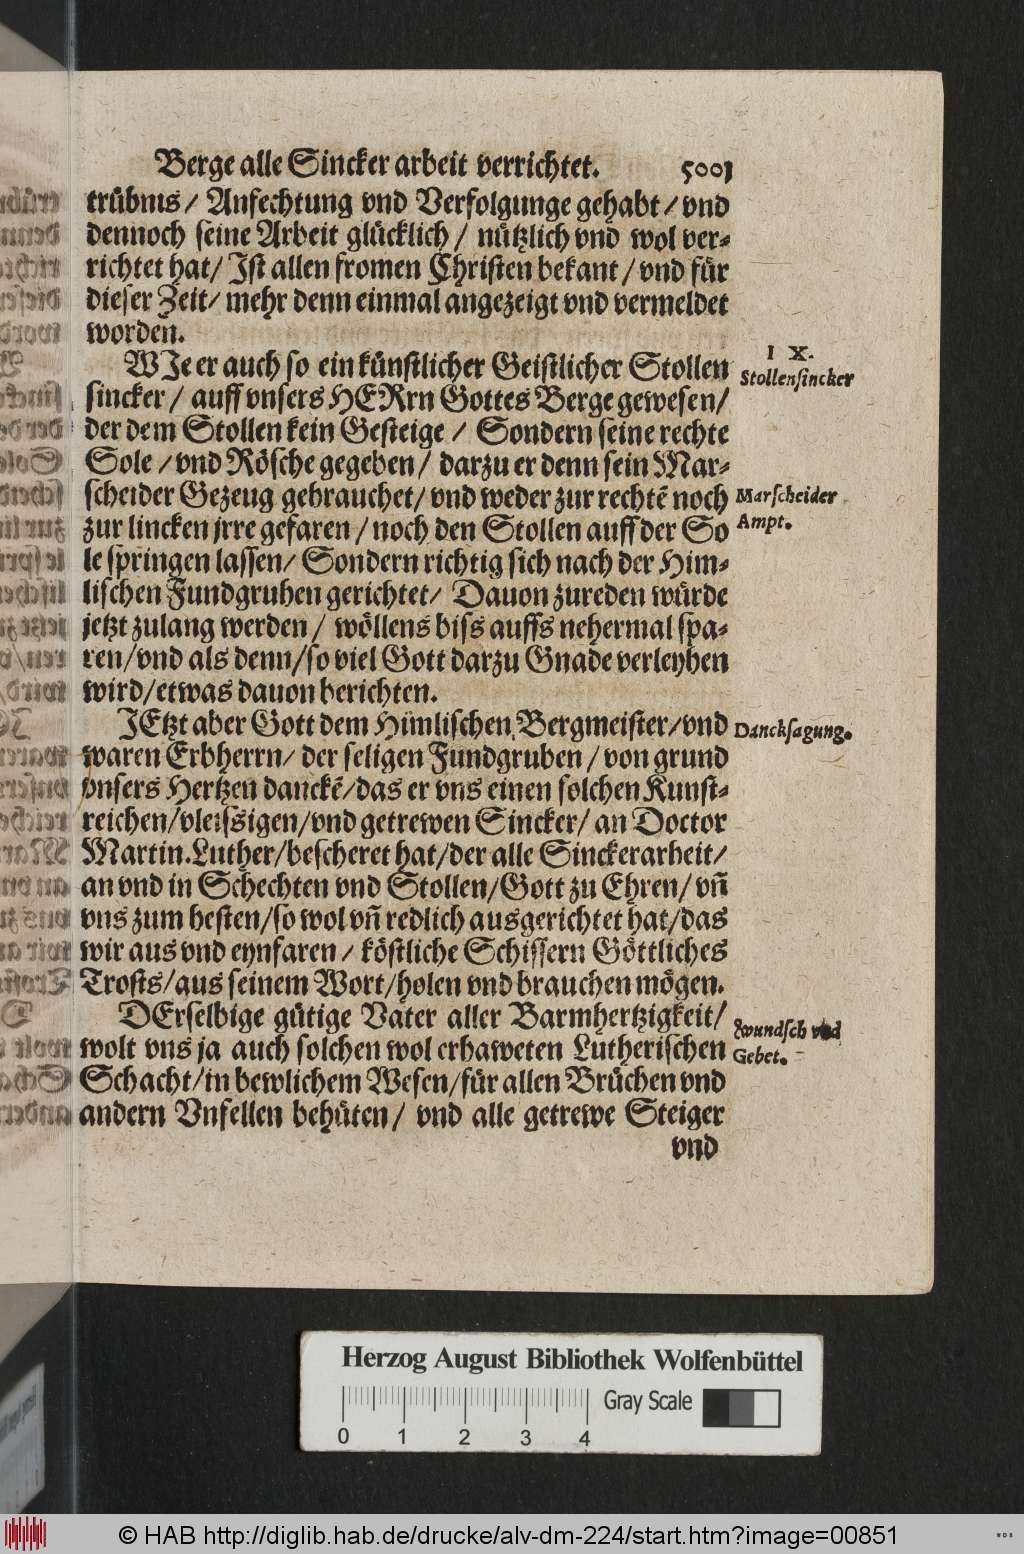 Berge alle Sincker arbeit verrichtet. 500j
trübnis/ Anfechtung vnd Verfolgunge gehabt/ vnd
dennoch seine Arbeit glücklich/ nützlich vnd wol ver-
richtet hat/ Ist allen fromen Christen bekant/ vnd für
dieser Zeit/ mehr denn einmal angezeigt vnd vermeldet
worden.
WIe er auch so ein künstlicher Geistlicher Stollen
sincker/ auff vnsers HERrn Gottes Berge gewesen/
der dem Stollen kein Gesteige/ Sondern seine rechte
Sole/ vnd Rösche gegeben/ darzu er denn sein Mar-
scheider Gezeug gebrauchet/ vnd weder zur rechtē noch
zur lincken jrre gefaren/ noch den Stollen auff der So
le springen lassen/ Sondern richtig sich nach der Him-
lischen Fundgruben gerichtet/ Dauon zureden würde
jetzt zulang werden/ wöllens biss auffs nehermal spa-
ren/ vnd als denn/ so viel Gott darzu Gnade verleyhen
wird/ etwas dauon berichten.
JEtzt aber Gott dem Himlischen Bergmeister/ vnd
waren Erbherrn/ der seligen Fundgruben/ von grund
vnsers Hertzen danckē/ das er vns einen solchen Kunst-
reichen/ vleissigen/ vnd getrewen Sincker/ an Doctor
Martin. Luther/ bescheret hat/ der alle Sinckerarbeit/
an vnd in Schechten vnd Stollen/ Gott zu Ehren/ vñ
vns zum besten/ so wol vñ redlich ausgerichtet hat/ das
wir aus vnd eynfaren/ köstliche Schissern Göttliches
Trosts/ aus seinem Wort/ holen vnd brauchen mögen.
DErselbige gütige Vater aller Barmhertzigkeit/
wolt vns ja auch solchen wol erbaweten Lutherischen
Schacht/ in bewlichem Wesen/ für allen Brüchen vnd
andern Vnfellen behüten/ vnd alle getrewe Steiger
vnd
IX.
Stollensincker
Marscheider
Ampt.
Dancksagung.
Wundsch vnd
Gebet.
Herzog August Bibliothek Wolfenbüttel
Gray Scale
0 1 2 3 4
© HAB http://diglib.hab.de/drucke/alv-dm-224/start.htm?image=00851